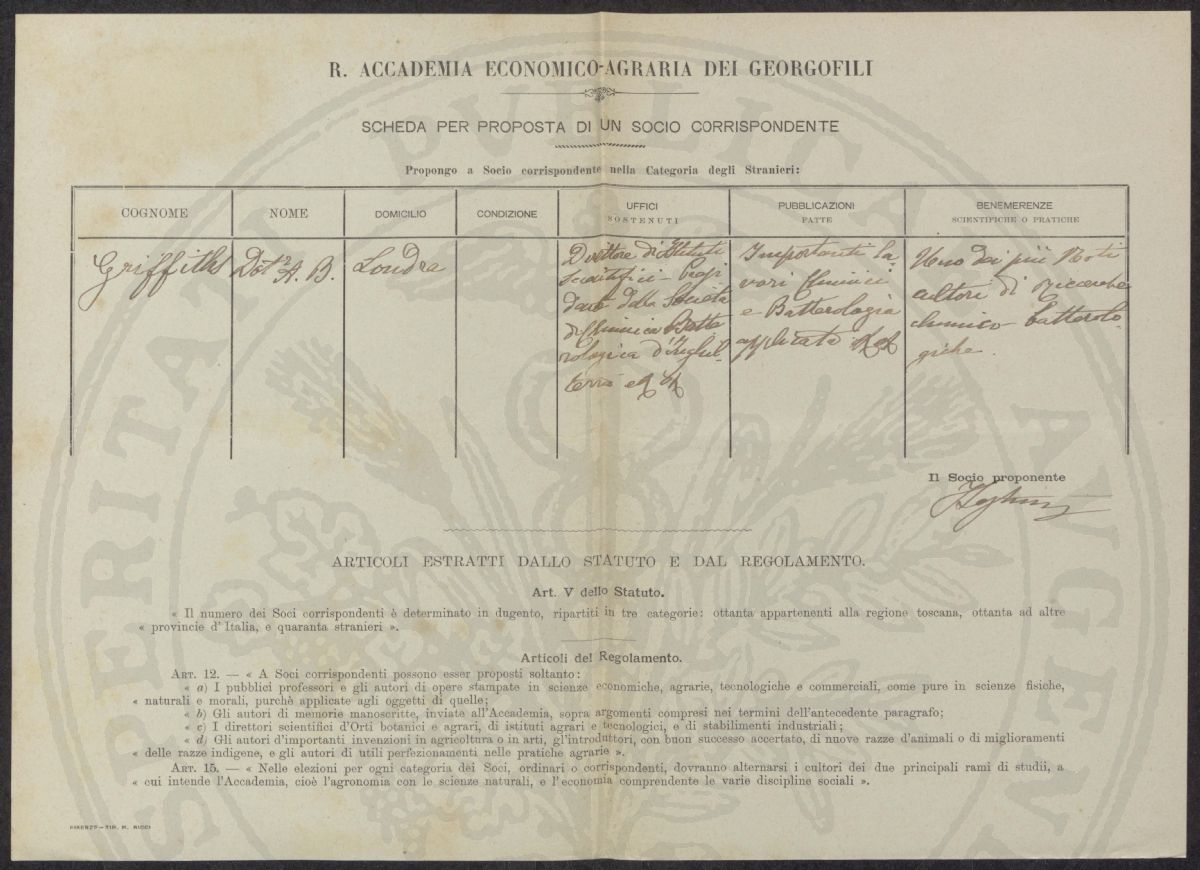 R. ACCADEMIA ECONOMICO-AGRARIA DEI GEORGOFILI
SCHEDA PER PROPOSTA DI UN SOCIO CORRISPONDENTE
Propongo a Socio corrispondente nella Categoria degli Stranieri:
COGNOME
NOME
DOMICILIO
CONDIZIONE
UFFICI
SOSTENUTI
PUBBLICAZIONI
FATTE
BENEMERENZE
SCIENTIFICHE O PRATICHE
Griffiths
Dotr A. B.
Londra
Direttore di Istituti
scientifici - Presi
dente della Società
di Chimica Batte
rologica d'Inghil-
terra
Importanti la
vori Chimici
e Batterologia
applicata
Uno dei più Noti
cultori di ricerche
chimico-batterolo
giche.
Il Socio proponente
ARTICOLI ESTRATTI DALLO STATUTO E DAL REGOLAMENTO.
Art. V dello Statuto.
« Il numero dei Soci corrispondenti è determinato in dugento, ripartiti in tre categorie: ottanta appartenenti alla regione toscana, ottanta ad altre
« provincie d'Italia, e quaranta stranieri ».
Articoli del Regolamento.
ART. 12. — « A Soci corrispondenti possono esser proposti soltanto:
« a) I pubblici professori e gli autori di opere stampate in scienze economiche, agrarie, tecnologiche e commerciali, come pure in scienze fisiche,
« naturali e morali, purchè applicate agli oggetti di quelle;
« b) Gli autori di memorie manoscritte, inviate all'Accademia, sopra argomenti compresi nei termini dell'antecedente paragrafo;
« c) I direttori scientifici d'Orti botanici e agrari, di istituti agrari e tecnologici, e di stabilimenti industriali;
« d) Gli autori d'importanti invenzioni in agricoltura o in arti, gl'introduttori, con buon successo accertato, di nuove razze d'animali o di miglioramenti
« delle razze indigene, e gli autori di utili perfezionamenti nelle pratiche agrarie ».
ART. 15. — « Nelle elezioni per ogni categoria dei Soci, ordinari o corrispondenti, dovranno alternarsi i cultori dei due principali rami di studii, a
« cui intende l'Accademia, cioè l'agronomia con le scienze naturali, e l'economia comprendente le varie discipline sociali ».
FIRENZE—TIP. M. RICCI